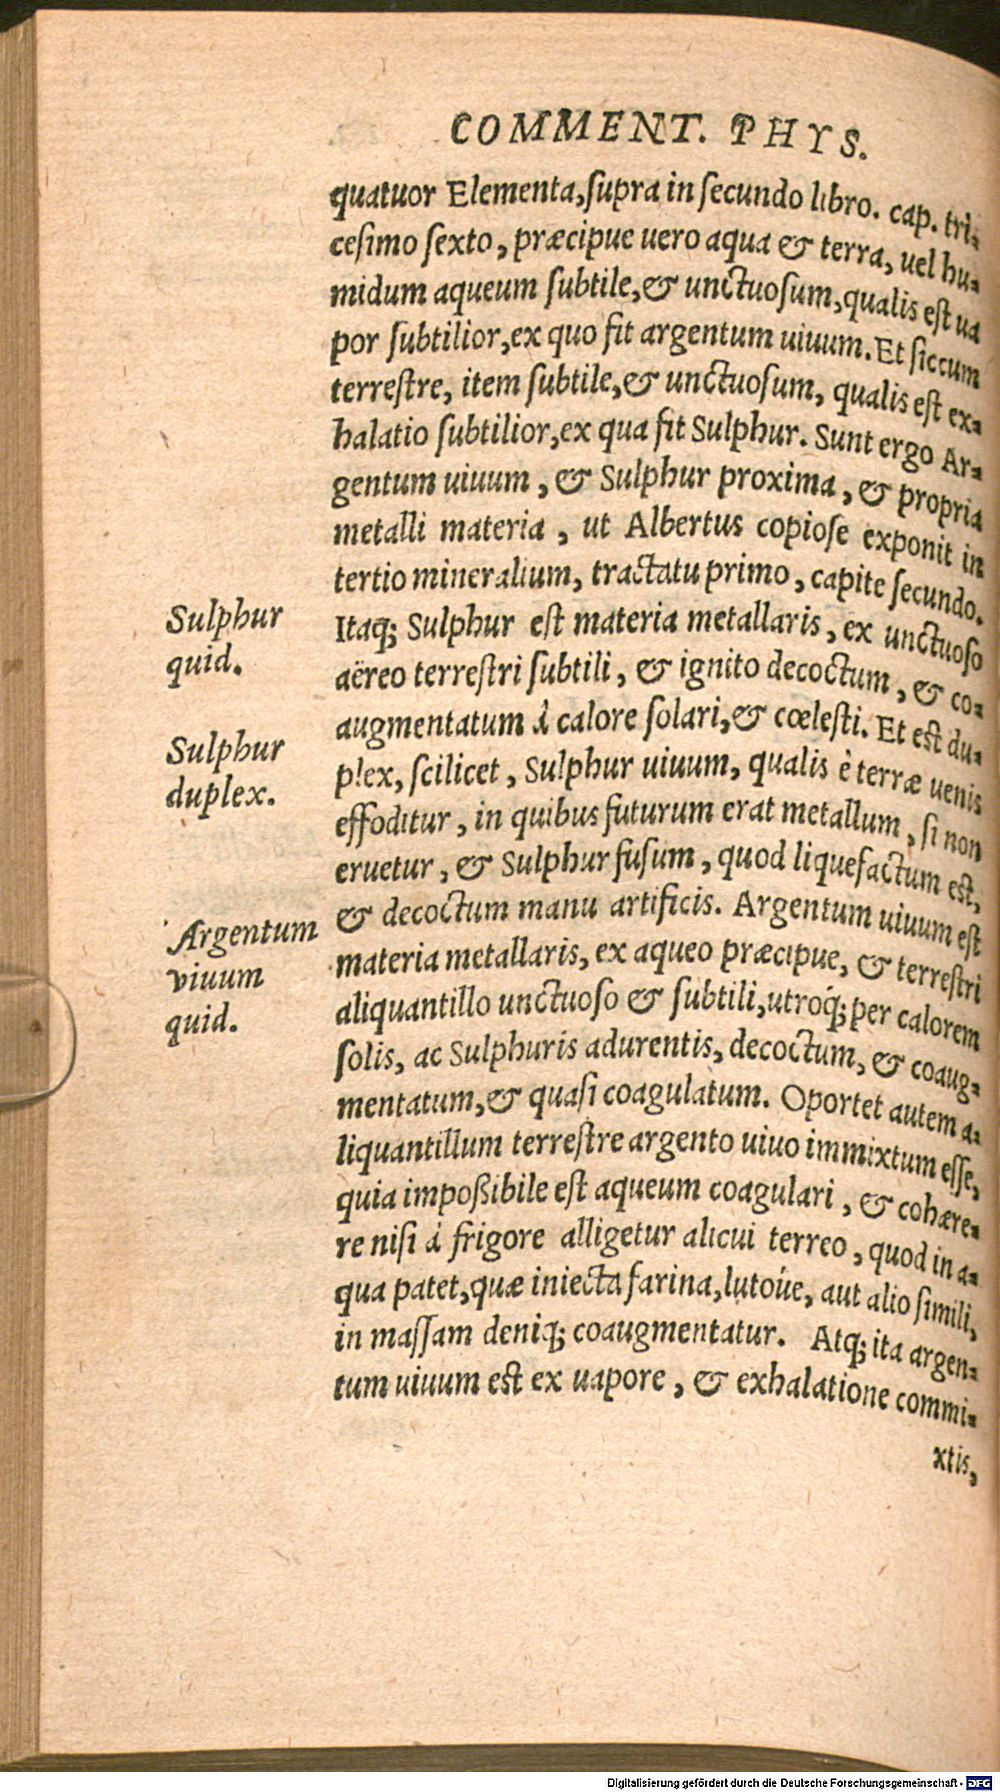 COMMENT. PHYS.
quatuor Elementa, supra in secundo libro. cap. tri-
cesimo sexto, præcipue uero aqua & terra, uel hu-
midum aqueum subtile, & unctuosum, qualis est ua
por subtilior, ex quo fit argentum uiuum. Et siccum
terrestre, item subtile, & unctuosum, qualis est ex-
halatio subtilior, ex qua fit Sulphur. Sunt ergo Ar-
gentum uiuum, & Sulphur proxima, & propria
metalli materia, ut Albertus copiose exponit in
tertio mineralium, tractatu primo, capite secundo.
Sulphur
quid.
Itaq; Sulphur est materia metallaris, ex unctuoso
aëreo terrestri subtili, & ignito decoctum, & co-
augmentatum à calore solari, & cœlesti. Et est du-
Sulphur
duplex.
plex, scilicet, Sulphur uiuum, qualis è terræ uenis
effoditur, in quibus futurum erat metallum, si non
eruetur, & Sulphur fusum, quod liquefactum est,
& decoctum manu artificis. Argentum uiuum est
Argentum
viuum
quid.
materia metallaris, ex aqueo præcipue, & terrestri
aliquantillo unctuoso & subtili, utroq́; per calorem
solis, ac Sulphuris adurentis, decoctum, & coaug-
mentatum, & quasi coagulatum. Oportet autem a-
liquantillum terrestre argento uiuo immixtum esse,
quia impoßibile est aqueum coagulari, & cohære-
re nisi à frigore alligetur alicui terreo, quod in a-
qua patet, quæ iniecta farina, lutoúe, aut alio simili,
in massam deniq; coaugmentatur. Atq; ita argen-
tum uiuum est ex uapore, & exhalatione commi-
xtis,
Digitalisierung gefördert durch die Deutsche Forschungsgemeinschaft - DFG